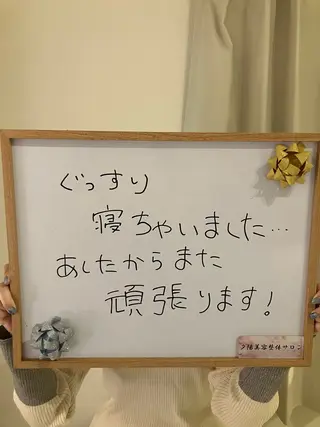 ぐっすり
寝ちゃいました…
あしたからまた
頑張ります!
夕陽美容整体サロン